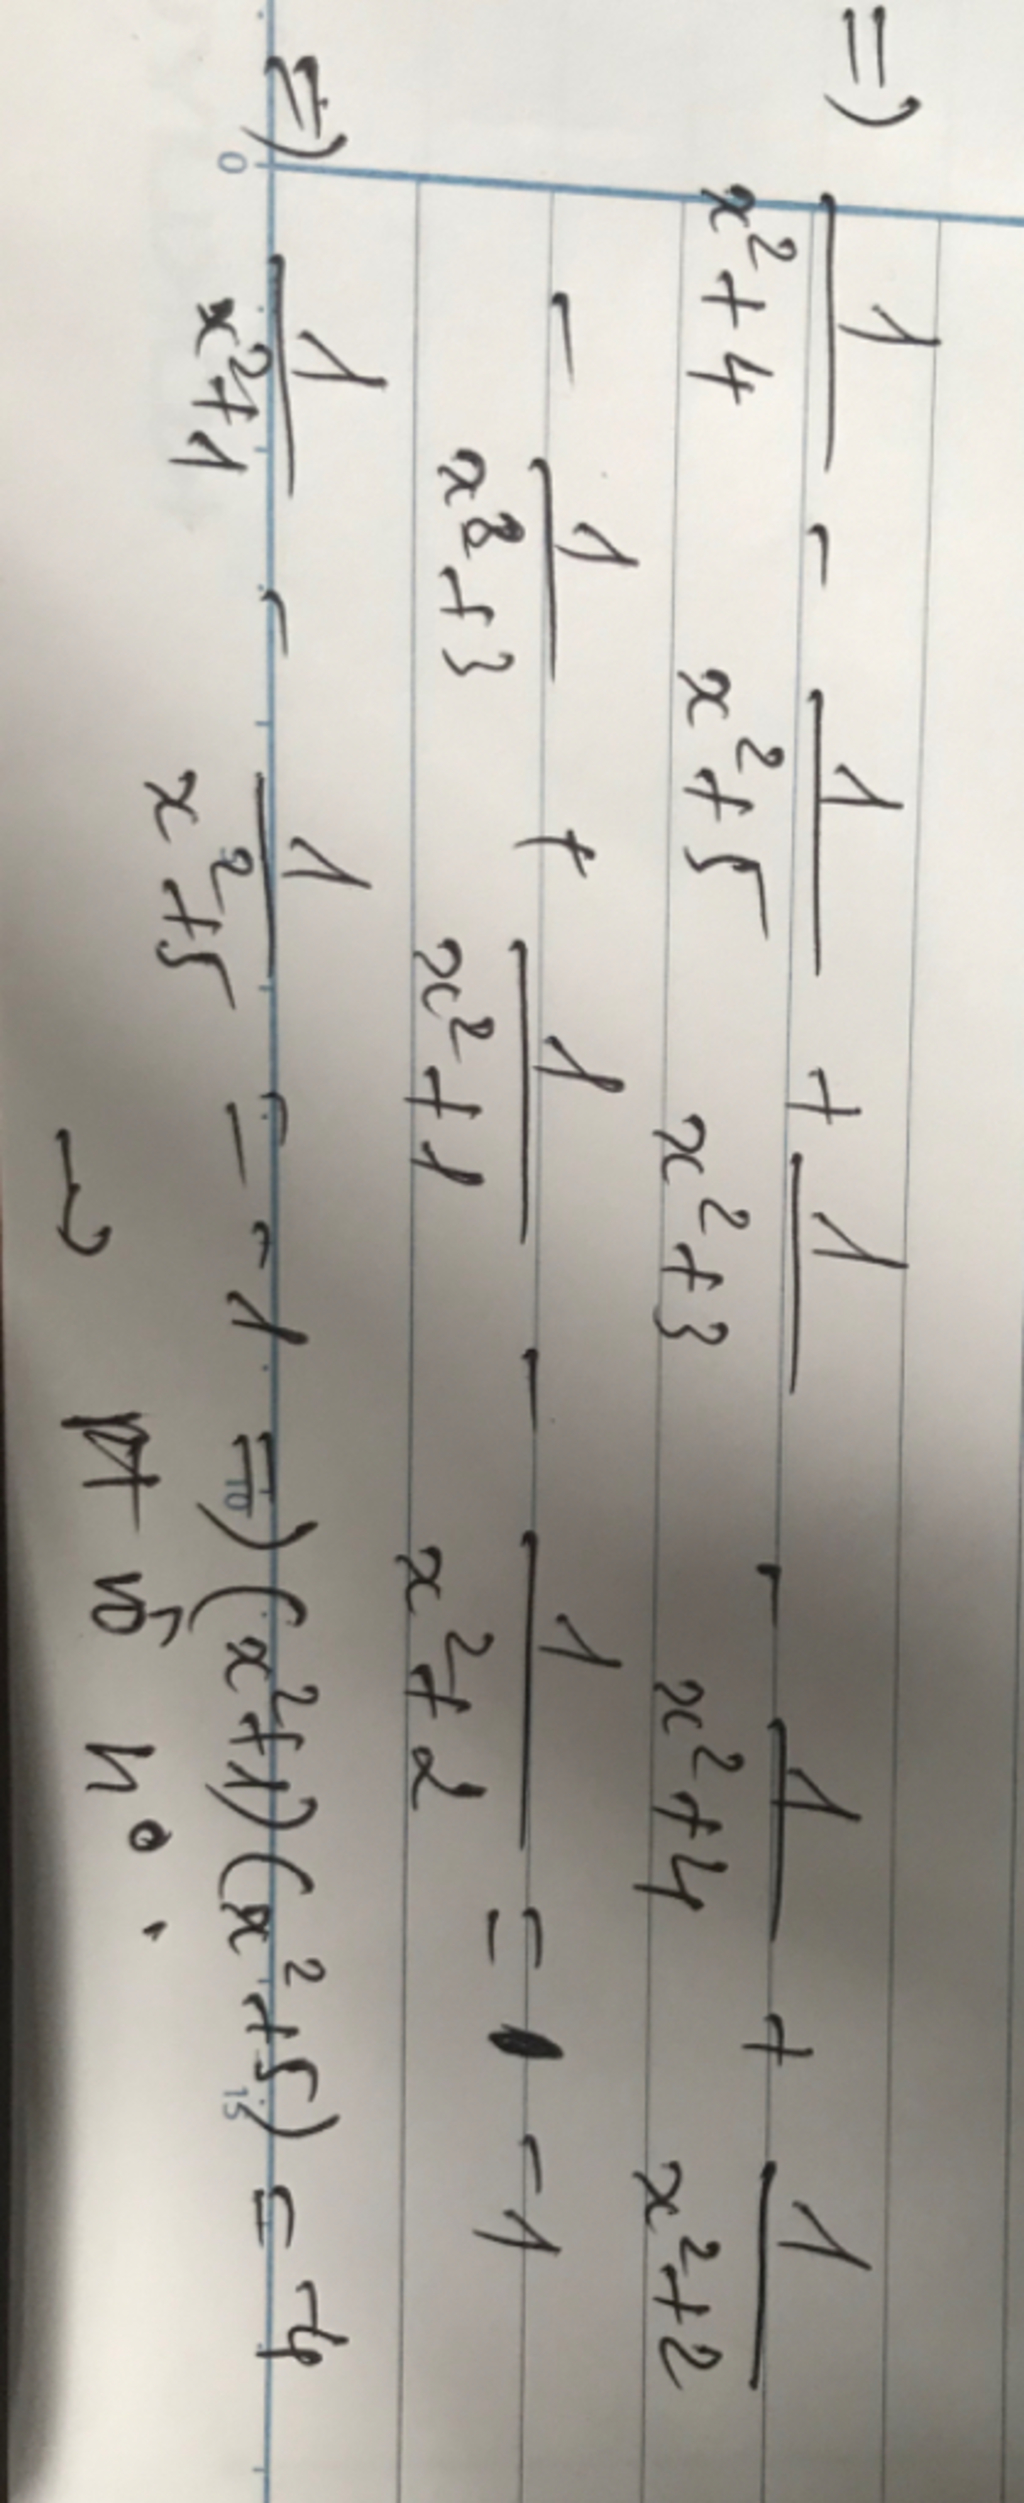 =) 1/(x²+4) - 1/(x²+5) + 1/(x²+3) - 1/(x²+4) + 1/(x²+2)
- 1/(x²+3) + 1/(x²+1) - 1/(x²+2) = -1
=) 1/(x²+1) - 1/(x²+5) = -1 =) (x²+1)(x²+5) = -4
→ pt vô n°.
0 10 15